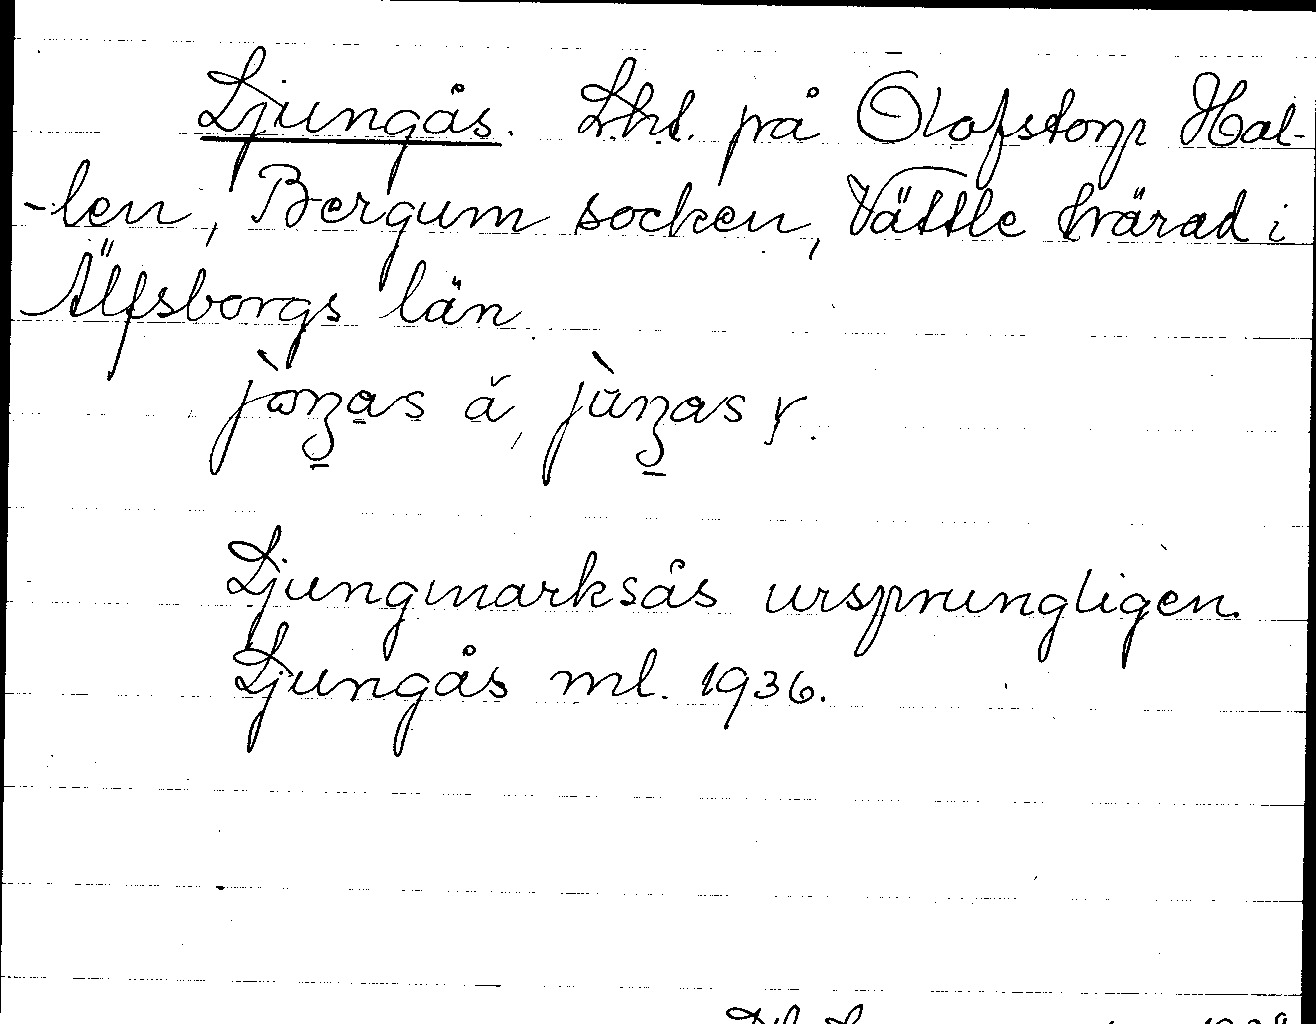 Ljungås. Lht. på Olofstorp Hal-
-len, Bergum socken, Vättle härad i
Älfsborgs län.
Ljungmarksås ursprungligen.
Ljungås ml. 1936.